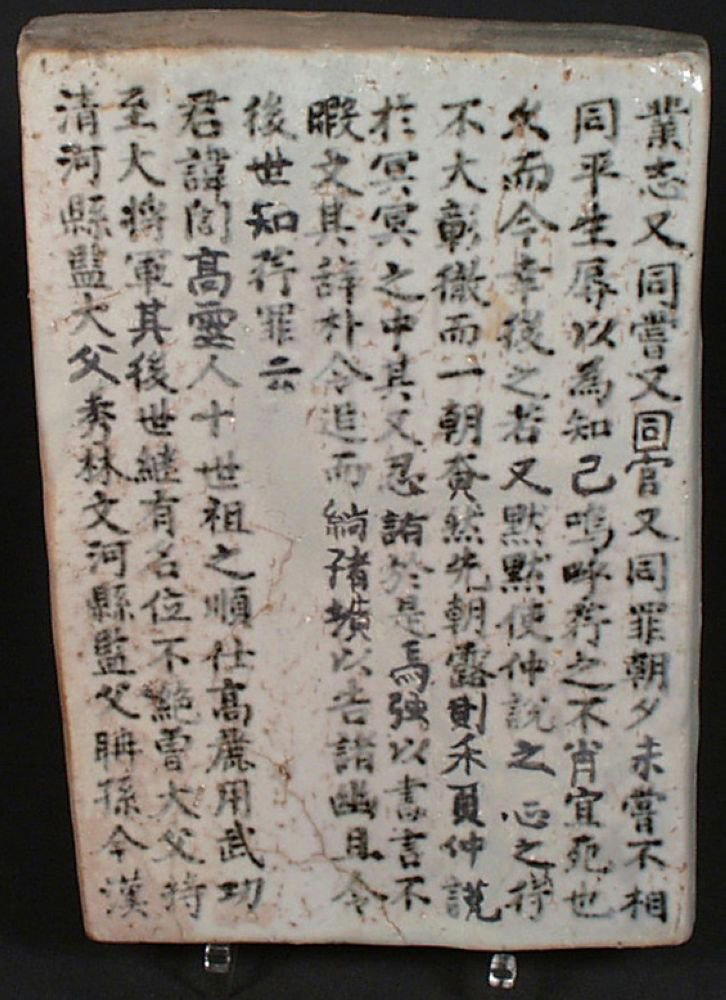 業志又同嘗又同官又同罪朝夕未嘗不相
同平生辱以為知己嗚呼荇之不肖宜死也
久而今幸後之若又默默使仲說之心之行
不大彰徹而一朝奄然先朝露則禾頁仲說
於冥冥之中其又忍諸於是焉强以書言不
暇文其辞朴令追而綯㙇以告諸幽且令
後世知荇罪云
君諱誾高靈人十世祖之順仕高麗用武功
至大將軍其後世継有名位不絶曾大父持
清河縣監大父秀林文河縣監父聃孫今漢